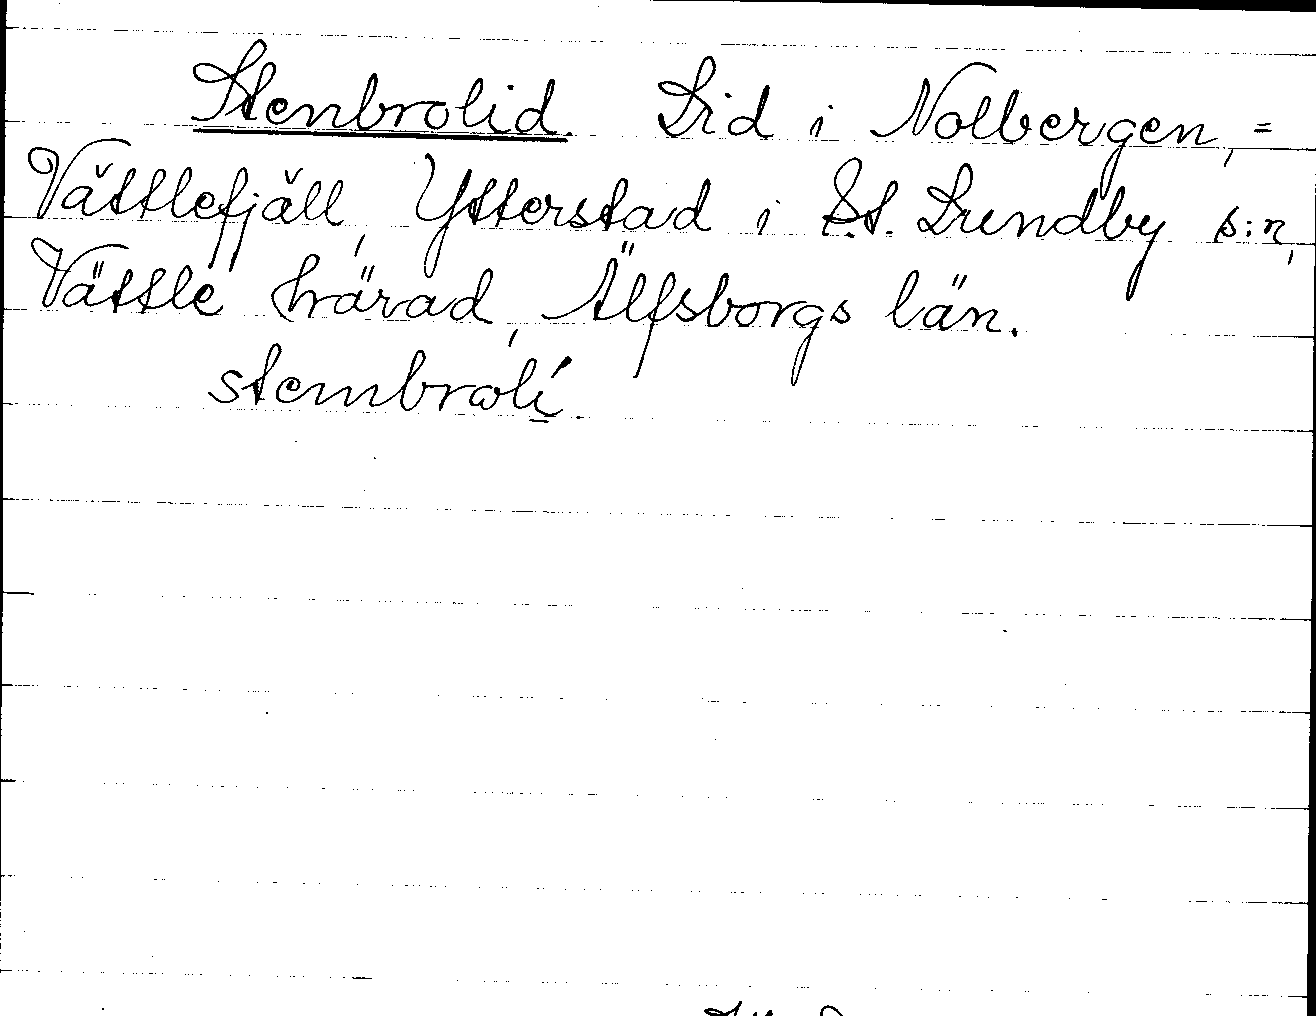 Stenbrolid. Lid i Nolbergen, =
Vättlefjäll, Ytterstad i St. Lundby s:n,
Vättle härad, Älfsborgs län.
stembrolí.